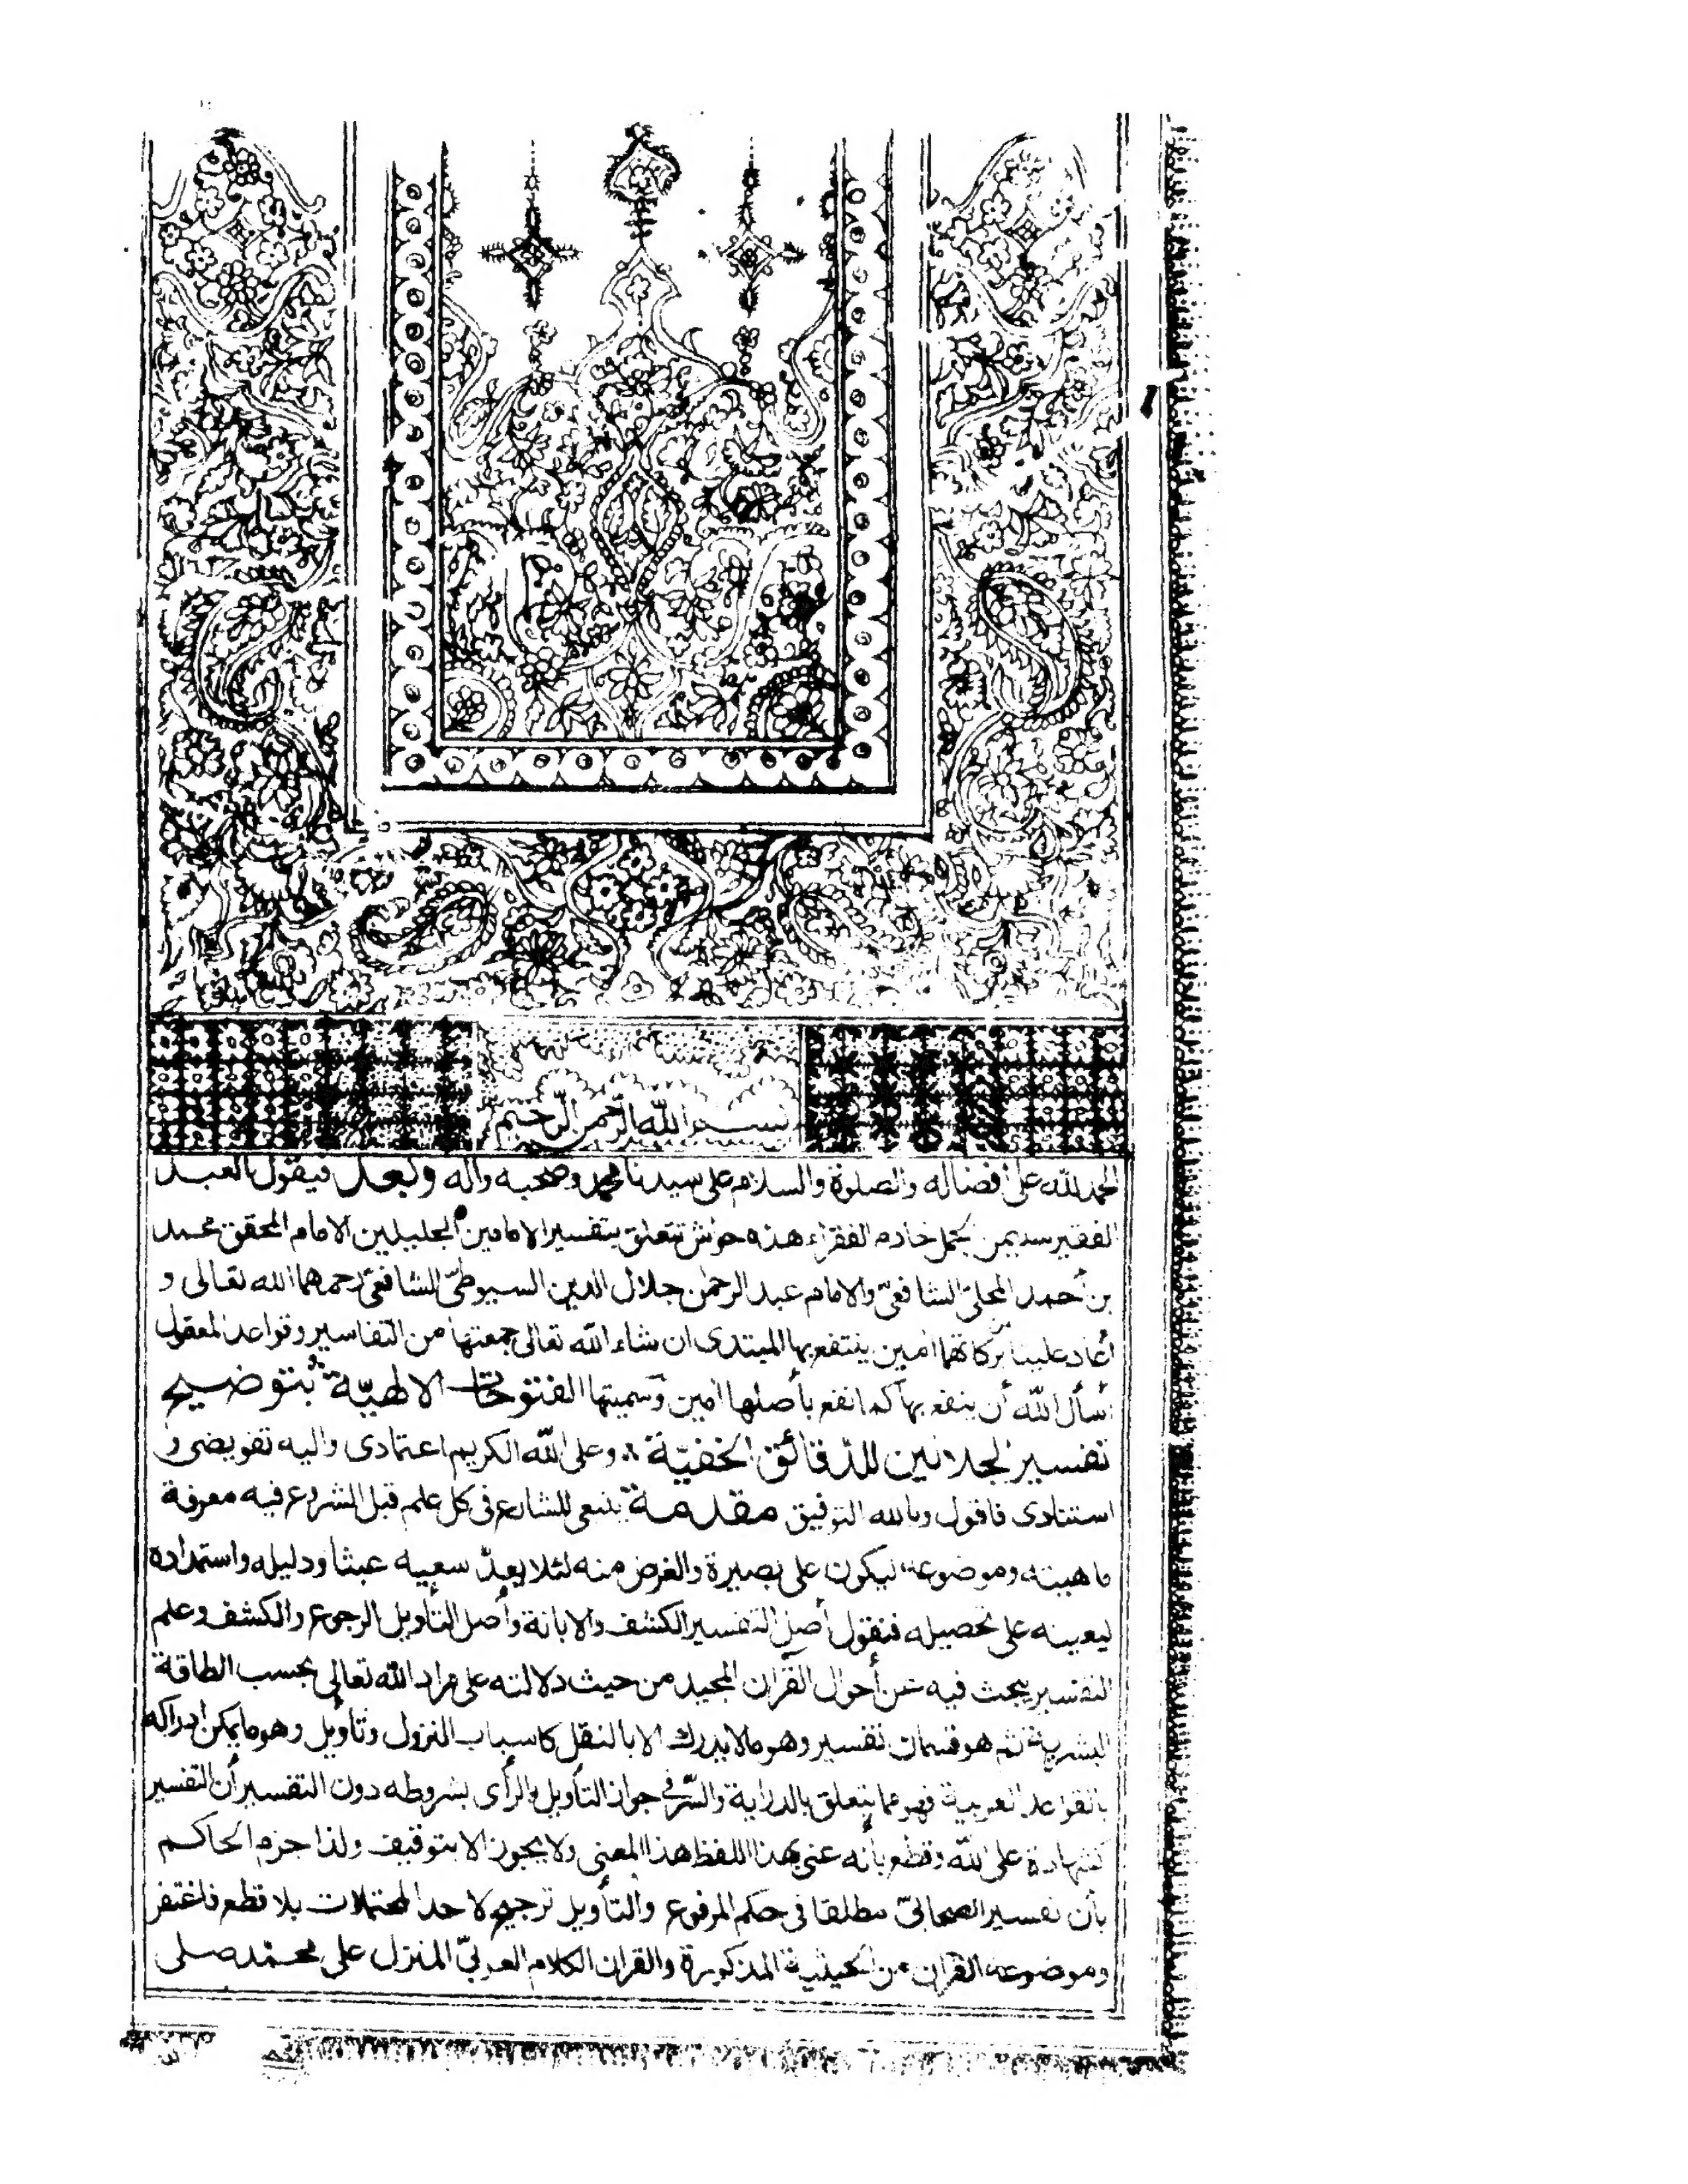 بسم الله الرّحمن الرّحيم
الحمد لله على أفضاله والصلوة والسلام على سيدنا محمد وصحبه وآله وبعد فيقول العبد
الفقير سليمن الجمل خادم الفقراء هذه حواش تتعلق بتفسير الامامين الجليلين الامام المحقق محمد
بن أحمد المحلىّ الشافعىّ والامام عبد الرحمٰن جلال الدين السيوطىّ الشافعىّ رحمهما الله تعالى و
أعاد علينا من بركاتهما امين ينتفع بها المبتدى ان شاء الله تعالى جمعتها من التفاسير وقواعد المعقول
أسأل الله أن ينفع بها كما نفع بأصلها امين وسميتها الفتوحات الالهيّة بتوضيح
تفسير الجلالين للدّقائق الخفيّة وعلى الله الكريم اعتمادى واليه تفويضى و
استنادى فاقول وبالله التوفيق مقدمة ينبغى للشارع فى كل علم قبل الشروع فيه معرفة
ماهيته وموضوعه ليكون على بصيرة والغرض منه لئلا يعدّ سعيه عبثا ودليله واستمداده
ليعينه على تحصيله فنقول أصل التفسير الكشف والابانة وأصل التأويل الرجوع والكشف وعلم
التفسير يبحث فيه عن أحوال القرآن المجيد من حيث دلالته على مراد الله تعالى بحسب الطاقة
البشرية ثم هو قسمان تفسير وهو ما لا يدرك الا بالنقل كاسباب النزول وتأويل وهو ما يمكن ادراكه
بالقواعد العربية فهو مما يتعلق بالدراية والسّرّ فى جواز التأويل بالرأى بشروطه دون التفسير أن التفسير
كشهادة على الله وقطع بأنه عنى بهذا اللفظ هذا المعنى ولا يجوز الا بتوقيف ولذا جزم الحاكم
بأن تفسير الصحابىّ مطلقا فى حكم المرفوع والتأويل ترجيح لاحد المحتملات بلا قطع فاغتفر
وموضوعه القران من الحيثية المذكورة والقران الكلام العربىّ المنزل على محمد صلى